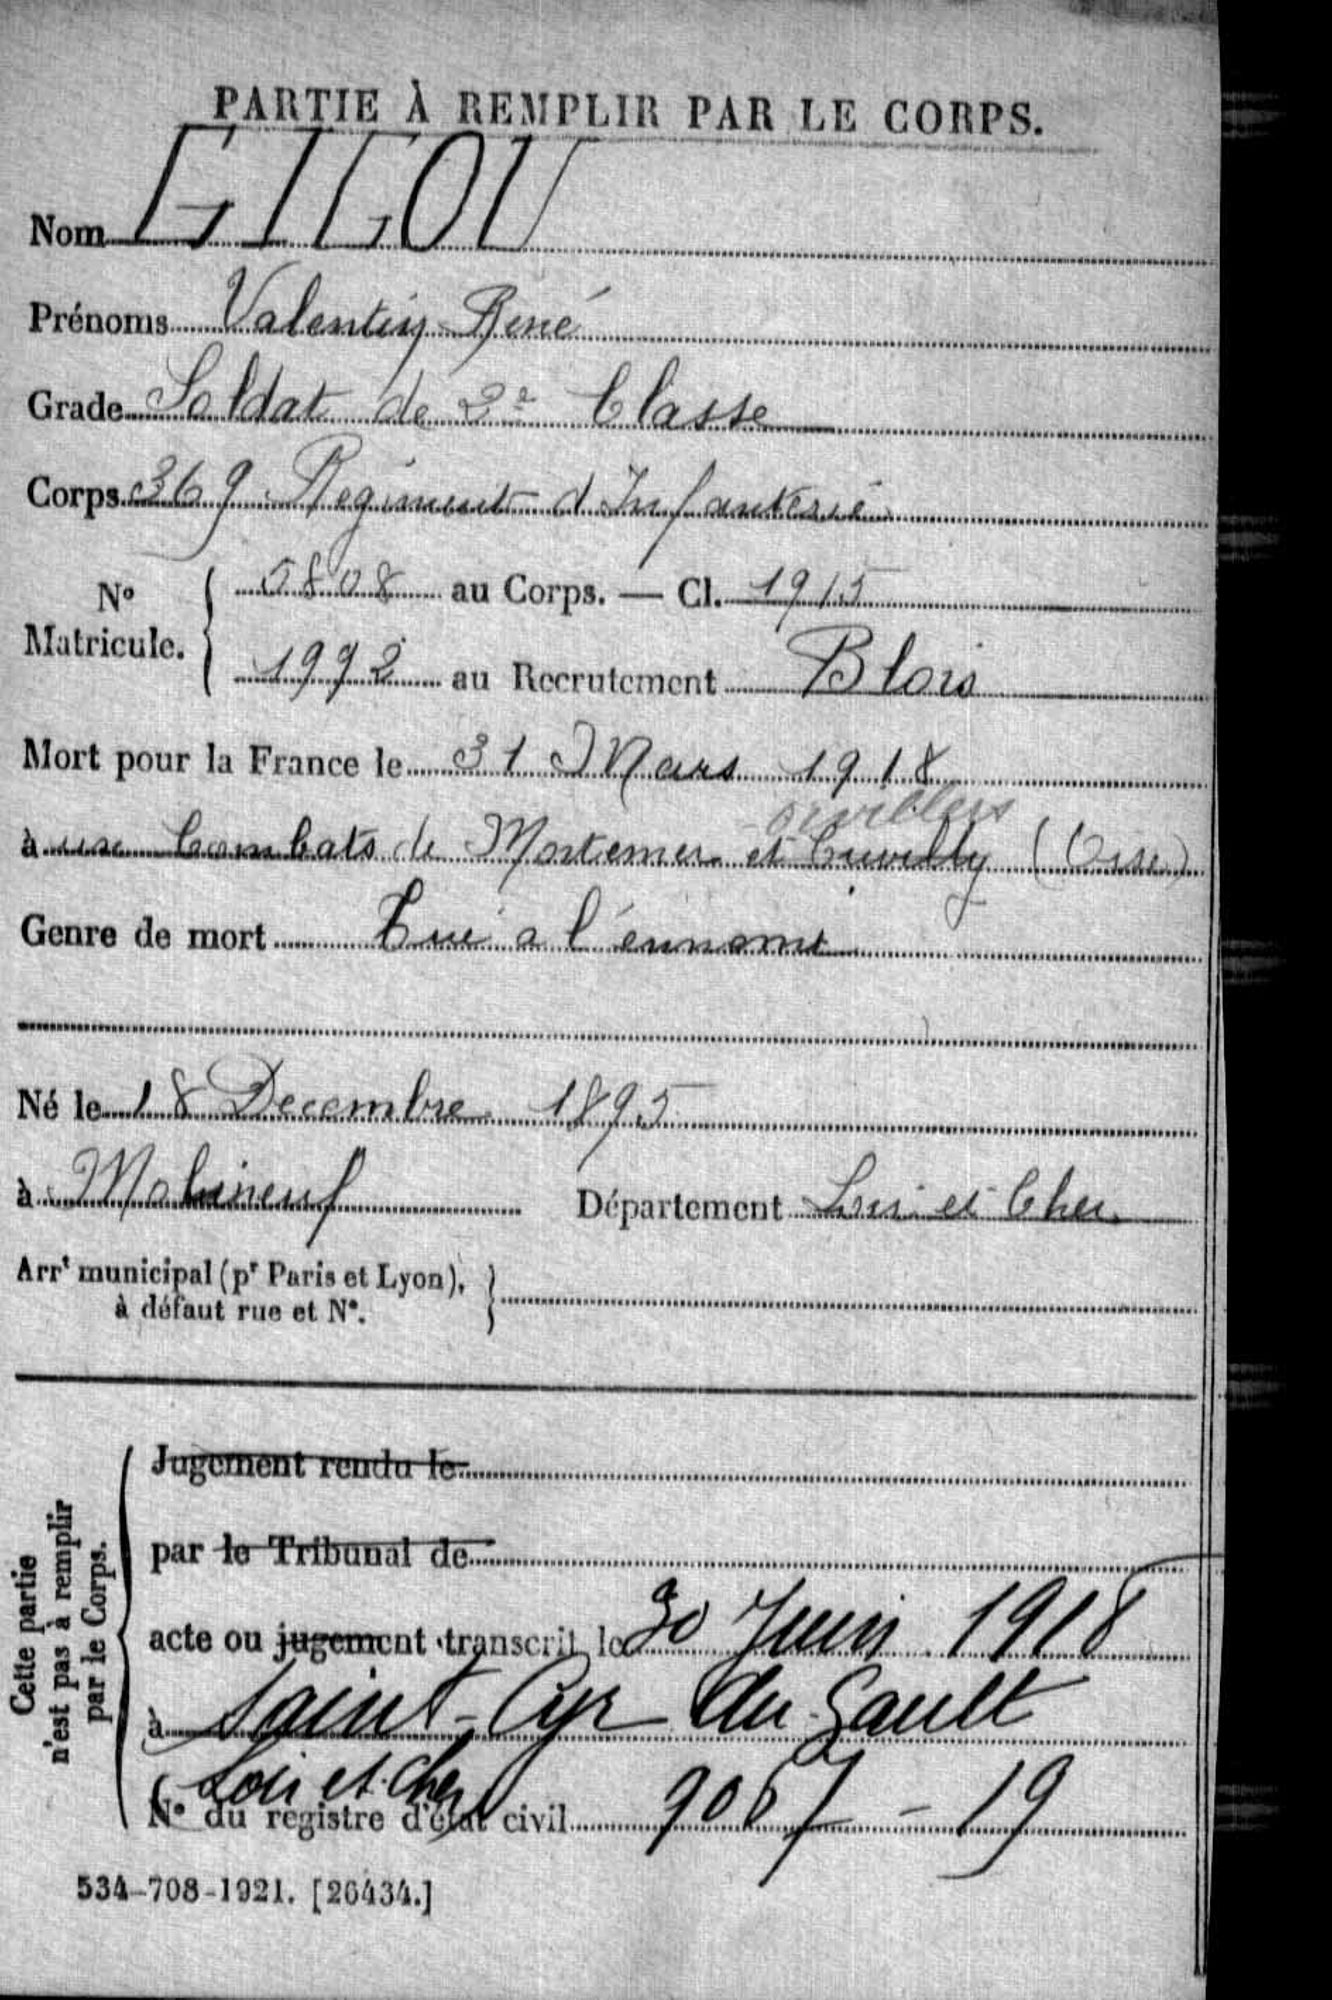 PARTIE À REMPLIR PAR LE CORPS.
Nom GIGOU
Prénoms Valentin René
Grade Soldat de 2e Classe
Corps 369 Régiment d'Infanterie
No Matricule. { 5808 au Corps. — Cl. 1915
1992 au Recrutement Blois
Mort pour la France le 31 Mars 1918
orvillers
à aux Combats de Mortemer et Cuvilly (Oise)
Genre de mort Tué a l'ennemi
Né le 18 Decembre 1895
à Molineuf Département Loir et Cher
Arrt municipal (pr Paris et Lyon),
à défaut rue et No.
Cette partie
n'est pas à remplir
par le Corps.
Jugement rendu le
par le Tribunal de
acte ou jugement transcrit le 30 Juin 1918
à Saint-Cyr du Gault
Loir et Cher
No du registre d'état civil 9067 - 19
534-708-1921. [26434.]